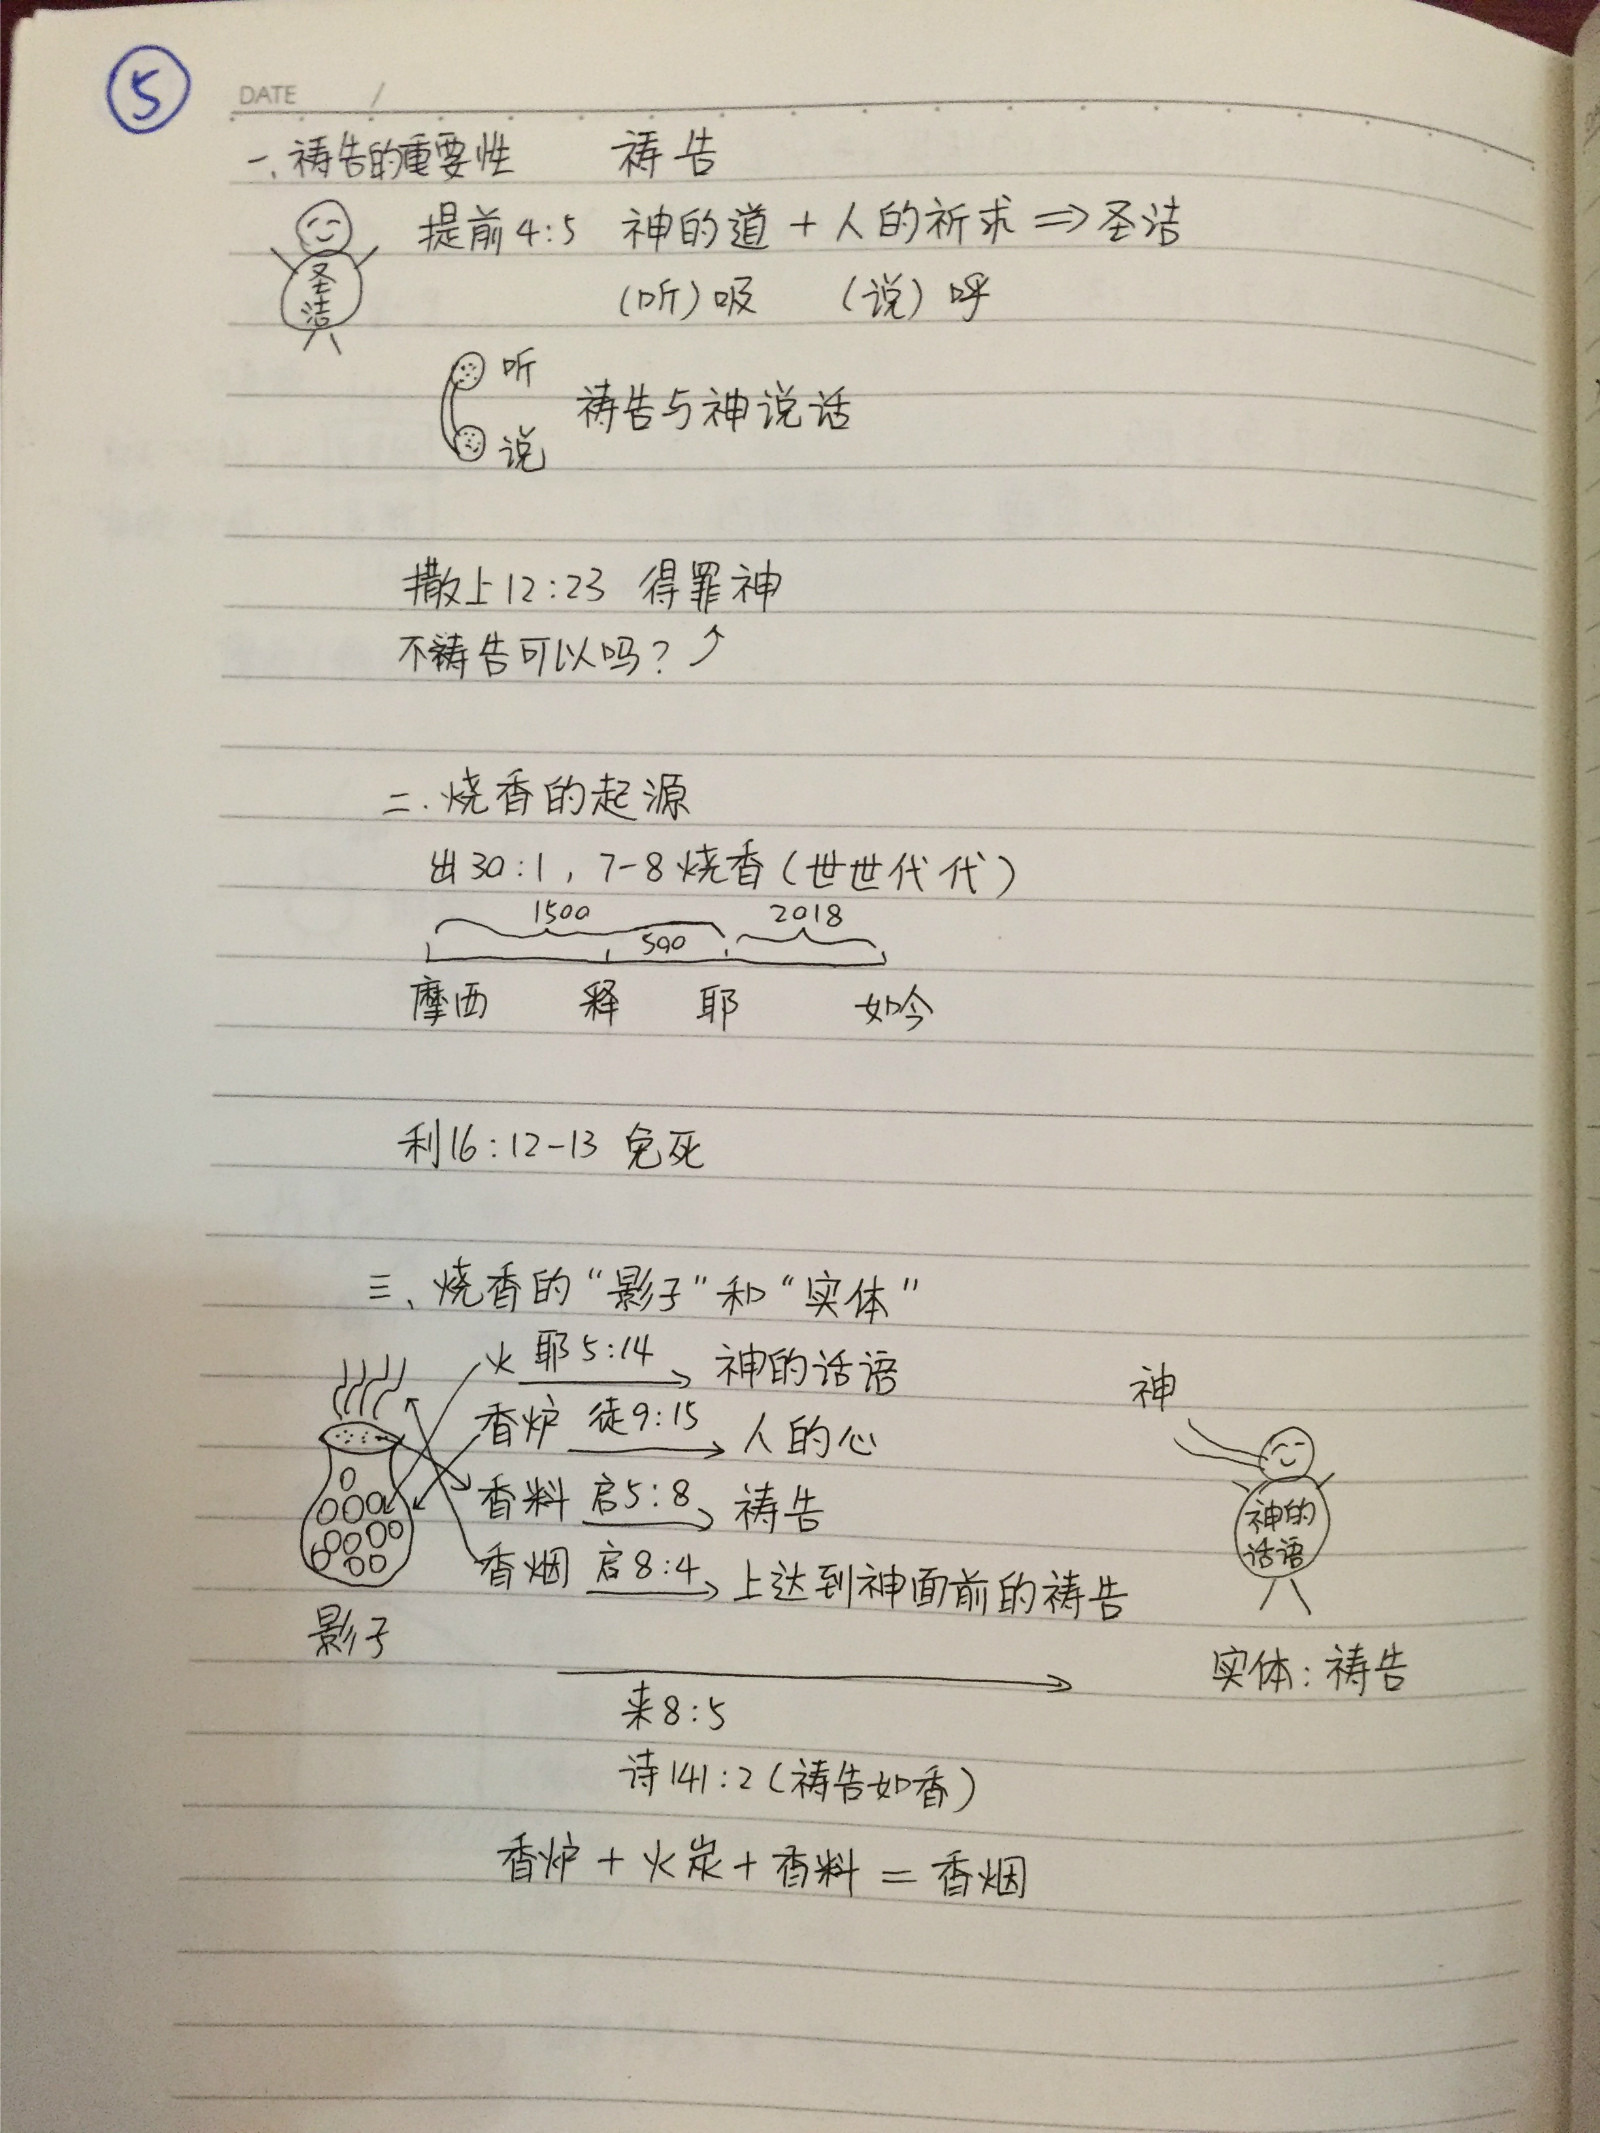 5
DATE /
一、祷告的重要性 祷告
提前4:5 神的道 + 人的祈求 ⇒ 圣洁
圣洁
(听)吸 (说)呼
听
祷告与神说话
说
撒上12:23 得罪神
不祷告可以吗?
二.烧香的起源
出30:1,7-8烧香(世世代代)
1500 2018
500
摩西 释 耶 如今
利16:12-13 免死
三、烧香的“影子”和“实体”
火 耶5:14 神的话语
神
香炉 徒9:15 人的心
香料 启5:8 祷告
神的话语
香烟 启8:4 上达到神面前的祷告
影子
实体:祷告
来8:5
诗141:2(祷告如香)
香炉 + 火炭 + 香料 = 香烟